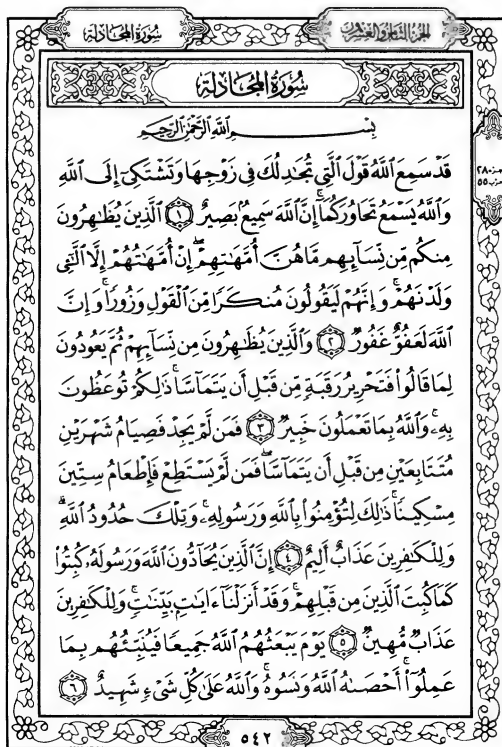 سُورَةُ المُجَادلة
الجُزءُ الثَّامِنُ وَالعِشرُونَ
سُورَةُ المُجَادلة
بِسْمِ اللَّهِ الرَّحْمَٰنِ الرَّحِيمِ
قَدْ سَمِعَ اللَّهُ قَوْلَ الَّتِي تُجَٰدِلُكَ فِي زَوْجِهَا وَتَشْتَكِيٓ إِلَى اللَّهِ
وَاللَّهُ يَسْمَعُ تَحَاوُرَكُمَآ ۚ إِنَّ اللَّهَ سَمِيعٌۢ بَصِيرٌ ﴿١﴾ الَّذِينَ يُظَٰهِرُونَ
مِنكُم مِّن نِّسَآئِهِم مَّا هُنَّ أُمَّهَٰتِهِمْ ۖ إِنْ أُمَّهَٰتُهُمْ إِلَّا الَّٰٓـِٔي
وَلَدْنَهُمْ ۚ وَإِنَّهُمْ لَيَقُولُونَ مُنكَرًا مِّنَ الْقَوْلِ وَزُورًا ۚ وَإِنَّ
اللَّهَ لَعَفُوٌّ غَفُورٌ ﴿٢﴾ وَالَّذِينَ يُظَٰهِرُونَ مِن نِّسَآئِهِمْ ثُمَّ يَعُودُونَ
لِمَا قَالُوا۟ فَتَحْرِيرُ رَقَبَةٍ مِّن قَبْلِ أَن يَتَمَآسَّا ۚ ذَٰلِكُمْ تُوعَظُونَ
بِهِۦ ۚ وَاللَّهُ بِمَا تَعْمَلُونَ خَبِيرٌ ﴿٣﴾ فَمَن لَّمْ يَجِدْ فَصِيَامُ شَهْرَيْنِ
مُتَتَابِعَيْنِ مِن قَبْلِ أَن يَتَمَآسَّا ۖ فَمَن لَّمْ يَسْتَطِعْ فَإِطْعَامُ سِتِّينَ
مِسْكِينًا ۚ ذَٰلِكَ لِتُؤْمِنُوا۟ بِاللَّهِ وَرَسُولِهِۦ ۚ وَتِلْكَ حُدُودُ اللَّهِ ۗ
وَلِلْكَٰفِرِينَ عَذَابٌ أَلِيمٌ ﴿٤﴾ إِنَّ الَّذِينَ يُحَآدُّونَ اللَّهَ وَرَسُولَهُۥ كُبِتُوا۟
كَمَا كُبِتَ الَّذِينَ مِن قَبْلِهِمْ ۚ وَقَدْ أَنزَلْنَآ ءَايَٰتٍۭ بَيِّنَٰتٍ ۚ وَلِلْكَٰفِرِينَ
عَذَابٌ مُّهِينٌ ﴿٥﴾ يَوْمَ يَبْعَثُهُمُ اللَّهُ جَمِيعًا فَيُنَبِّئُهُم بِمَا
عَمِلُوٓا۟ ۚ أَحْصَىٰهُ اللَّهُ وَنَسُوهُ ۚ وَاللَّهُ عَلَىٰ كُلِّ شَيْءٍ شَهِيدٌ ﴿٦﴾
جزء ٢٨
حزب ٥٥
٥٤٢